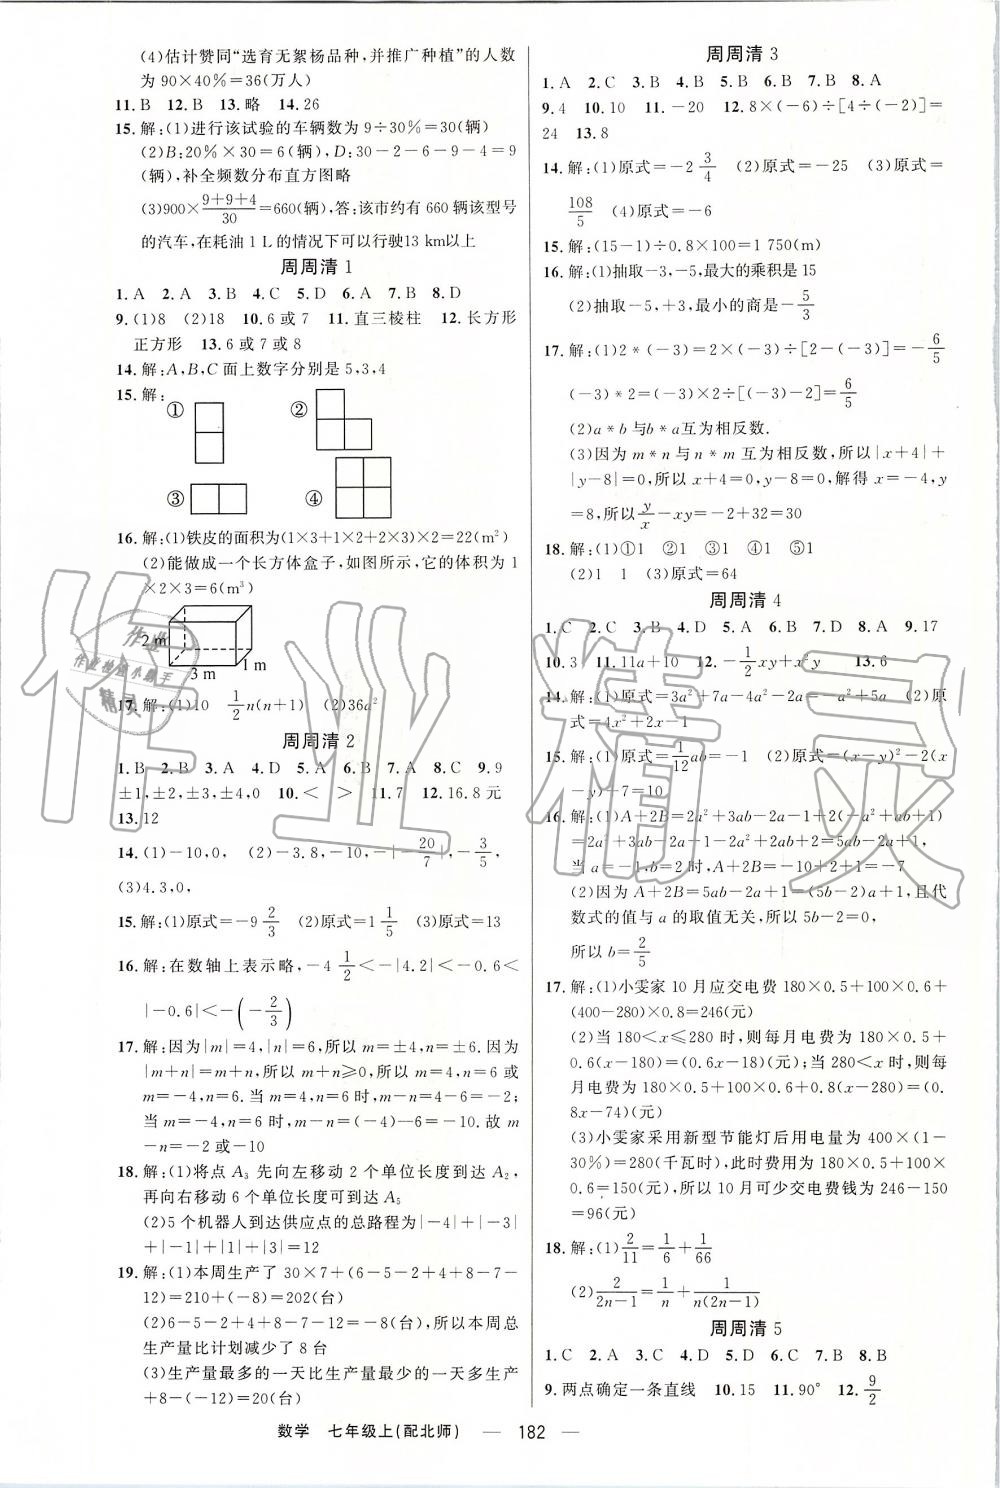 (4)估计赞同“选育无絮杨品种,并推广种植”的人数
为 90×40%=36(万人)
11. B  12. B  13. 略  14. 26
15. 解:(1)进行该试验的车辆数为 9÷30%=30(辆)
(2)B:20%×30=6(辆),D:30-2-6-9-4=9
(辆),补全频数分布直方图略
(3)900×(9+9+4)/30=660(辆),答:该市约有 660 辆该型号
的汽车,在耗油 1 L的情况下可以行驶13 km以上
周周清 1
1. A  2. A  3. B  4. C  5. D  6. A  7. B  8. D
9. (1)8  (2)18  10. 6 或 7  11. 直三棱柱  12. 长方形
正方形  13. 6 或 7 或 8
14. 解:A,B,C 面上数字分别是 5,3,4
15. 解:
①  ②
③  ④
16. 解:(1)铁皮的面积为(1×3+1×2+2×3)×2=22(m²)
(2)能做成一个长方体盒子,如图所示,它的体积为 1
×2×3=6(m³)
2 m
1 m
3 m
17. 解:(1)10  1/2 n(n+1)  (2)36a²
周周清 2
1. B  2. B  3. A  4. D  5. D  6. B  7. A  8. C  9. 9
±1,±2,±3,±4,0  10. <  >  11. 7  12. 16.8 元
13. 12
14. (1)-10,0,  (2)-3.8,-10,-|-20/7|,-3/5,
(3)4.3,0,
15. 解:(1)原式=-9 2/3  (2)原式=1 1/5  (3)原式=13
16. 解:在数轴上表示略,-4 1/2<-|4.2|<-0.6<
|-0.6|<-(-2/3)
17. 解:因为|m|=4,|n|=6,所以 m=±4,n=±6. 因为
|m+n|=m+n,所以 m+n≥0,所以 m=4,n=6 或
m=-4,n=6,当 m=4,n=6 时,m-n=4-6=-2;
当 m=-4,n=6 时,m-n=(-4)-6=-10. 故 m
-n=-2 或-10
18. 解:(1)将点 A₃ 先向左移动 2 个单位长度到达 A₂,
再向右移动 6 个单位长度可到达 A₅
(2)5 个机器人到达供应点的总路程为|-4|+|-3|
+|-1|+|1|+|3|=12
19. 解:(1)本周生产了 30×7+(6-5-2+4+8-7-
12)=210+(-8)=202(台)
(2)6-5-2+4+8-7-12=-8(台),所以本周总
生产量比计划减少了 8 台
(3)生产量最多的一天比生产量最少的一天多生产
+8-(-12)=20(台)
周周清 3
1. A  2. C  3. B  4. B  5. B  6. B  7. B  8. A
9. 4  10. 10  11. -20  12. 8×(-6)÷[4÷(-2)]=
24  13. 8
14. 解:(1)原式=-2 3/4  (2)原式=-25  (3)原式=
108/5  (4)原式=-6
15. 解:(15-1)÷0.8×100=1 750(m)
16. 解:(1)抽取-3,-5,最大的乘积是 15
(2)抽取-5,+3,最小的商是-5/3
17. 解:(1)2*(-3)=2×(-3)÷[2-(-3)]=-6/5
(-3)*2=(-3)×2÷[(-3)-2]=6/5
(2)a*b与b*a互为相反数.
(3)因为 m*n 与 n*m 互为相反数,所以|x+4|+
|y-8|=0,所以 x+4=0,y-8=0,解得 x=-4,y
=8,所以 y/x-xy=-2+32=30
18. 解:(1)①1  ②1  ③1  ④1  ⑤1
(2)1  1  (3)原式=64
周周清 4
1. C  2. C  3. B  4. D  5. A  6. B  7. D  8. A  9. 17
10. 3  11. 11a+10  12. -1/2 xy+x²y  13. 6
14. 解:(1)原式=3a²+7a-4a²-2a=-a²+5a  (2)原
式=4x²+2x-1
15. 解:(1)原式=1/12 ab=-1  (2)原式=(x-y)²-2(x
-y)+7=10
16. 解:(1)A+2B=2a²+3ab-2a-1+2(-a²+ab+1)
=2a²+3ab-2a-1-2a²+2ab+2=5ab-2a+1,
当 a=-1,b=2 时,A+2B=-10+2+1=-7
(2)因为 A+2B=5ab-2a+1=(5b-2)a+1,且代
数式的值与 a 的取值无关,所以 5b-2=0,
所以 b=2/5
17. 解:(1)小雯家 10 月应交电费 180×0.5+100×0.6+
(400-280)×0.8=246(元)
(2)当 180<x≤280 时,则每月电费为 180×0.5+
0.6(x-180)=(0.6x-18)(元);当 280<x 时,则每
月电费为 180×0.5+100×0.6+0.8(x-280)=(0.
8x-74)(元)
(3)小雯家采用新型节能灯后用电量为 400×(1-
30%)=280(千瓦时),此时费用为 180×0.5+100×
0.6=150(元),所以 10 月可少交电费钱为 246-150
=96(元)
18. 解:(1)2/11=1/6+1/66
(2)2/(2n-1)=1/n+1/(n(2n-1))
周周清 5
1. C  2. A  3. C  4. D  5. D  6. A  7. B  8. B
9. 两点确定一条直线  10. 15  11. 90°  12. 9/2
数学  七年级上(配北师)  — 182 —
作业精灵
作业
作业快速小助手
精灵